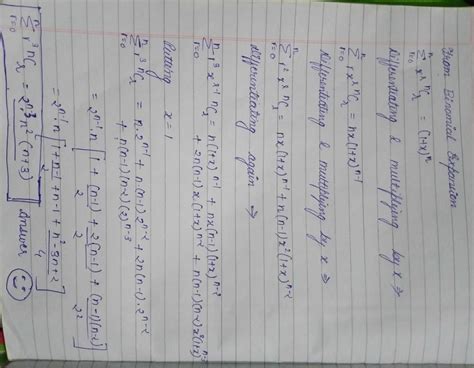 From Binomial Expansion
n∑r=0 x^r nCr = (1+x)^n
Differentiating & multiplying by x ⇒
n∑r=0 r x^r nCr = nx(1+x)^n-1
Differentiating & multiplying by x ⇒
n∑r=0 r² x^r nCr = nx(1+x)^n-1 + n(n-1)x²(1+x)^n-2
Differentiating again ⇒
n∑r=0 r³ x^r-1 nCr = n(1+x)^n-1 + nx(n-1)(1+x)^n-2
+ 2n(n-1)x(1+x)^n-2 + n(n-1)(n-2)x²(1+x)^n-3
Putting x = 1
n∑r=0 r³ nCr = n.2^n-1 + n(n-1).2^n-2 + 2n(n-1).2^n-2
+ n(n-1)(n-2)(2)^n-3
= 2^n-1.n [1 + (n-1)/2 + 2(n-1)/2 + (n-1)(n-2)/2²]
= 2^n-1.n [1 + n-1/2 + n-1 + n²-3n+2/4]
n∑r=0 r³ nCr = 2^n-3 n²(n+3) Answer